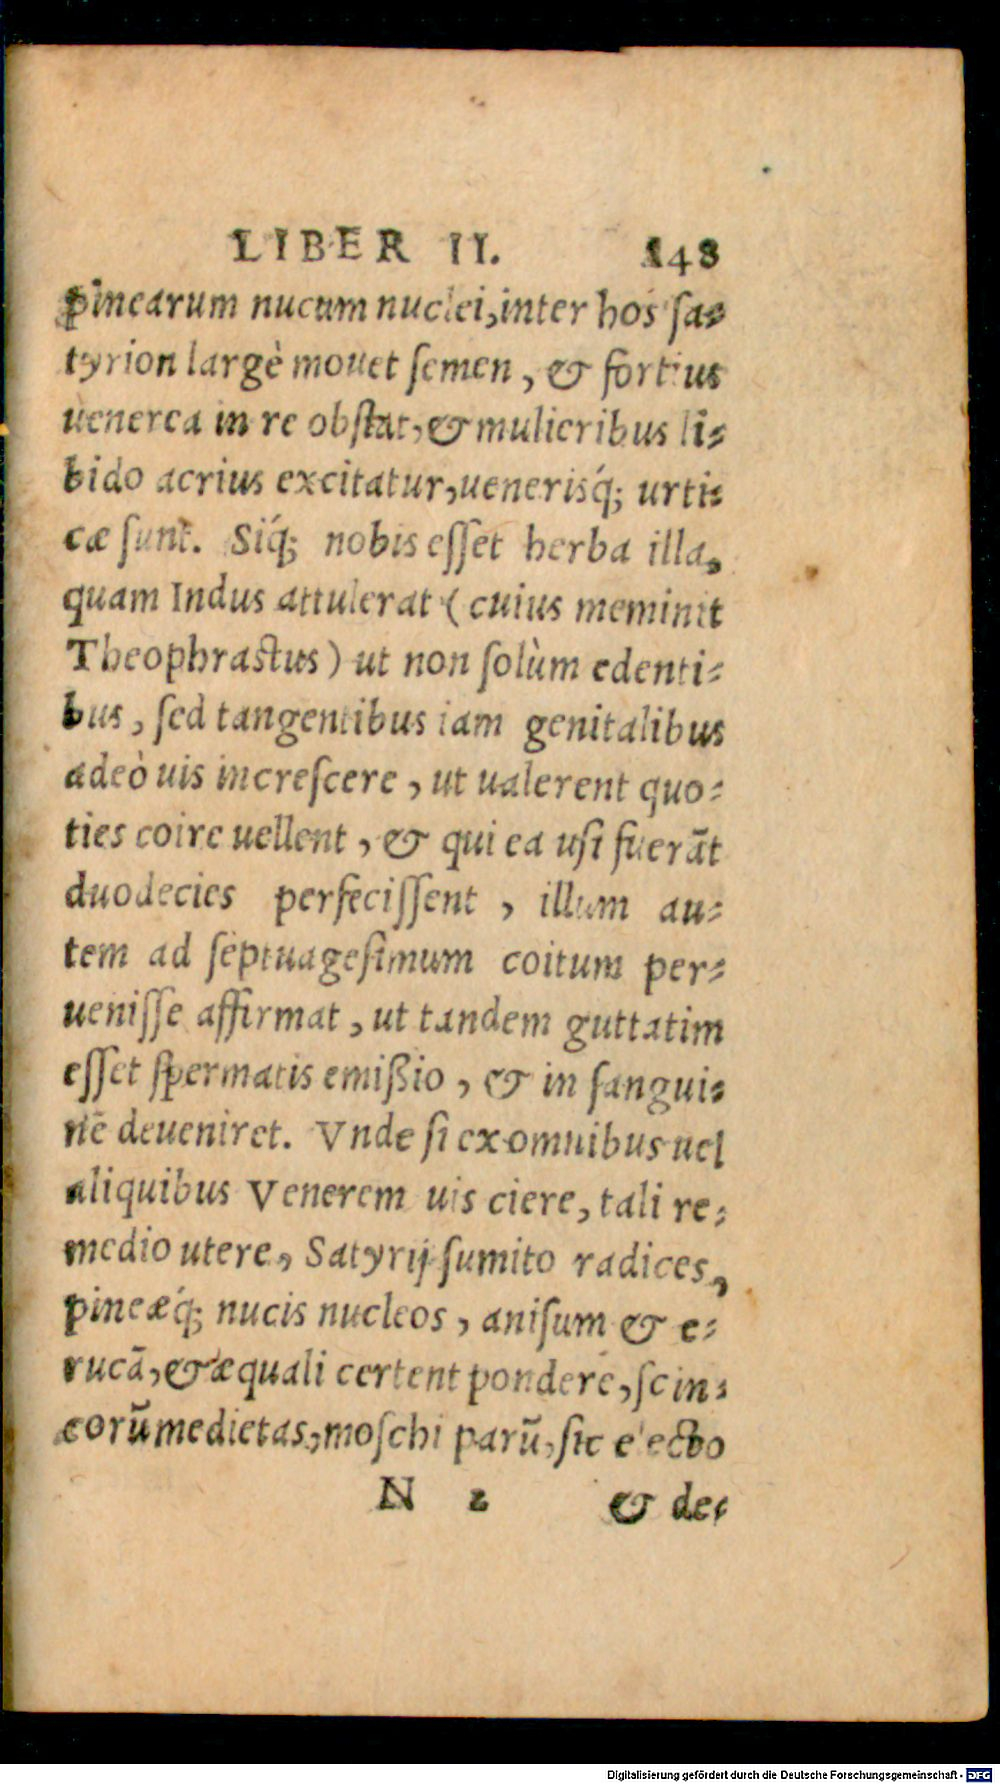 LIBER II. 148
pinearum nucum nuclei, inter hos sa=
tyrion largè mouet semen, & fortius
uenerea in re obstat, & mulieribus li=
bido acrius excitatur, uenerisq́; urti=
cæ sunt. Siq́; nobis esset herba illa,
quam Indus attulerat (cuius meminit
Theophrastus) ut non solùm edenti=
bus, sed tangentibus iam genitalibus
adeò uis increscere, ut ualerent quo=
ties coire uellent, & qui ea usi fuerãt
duodecies perfecissent, illum au=
tem ad septuagesimum coitum per=
uenisse affirmat, ut tandem guttatim
esset spermatis emißio, & in sangui=
nẽ deueniret. Vnde si ex omnibus uel
aliquibus Venerem uis ciere, tali re=
medio utere, Satyrij sumito radices,
pineæq́; nucis nucleos, anisum & e=
rucã, & æquali certent pondere, scin=
eorũ medietas, moschi parũ, sic electo
N 2 & de=
Digitalisierung gefördert durch die Deutsche Forschungsgemeinschaft - DFG